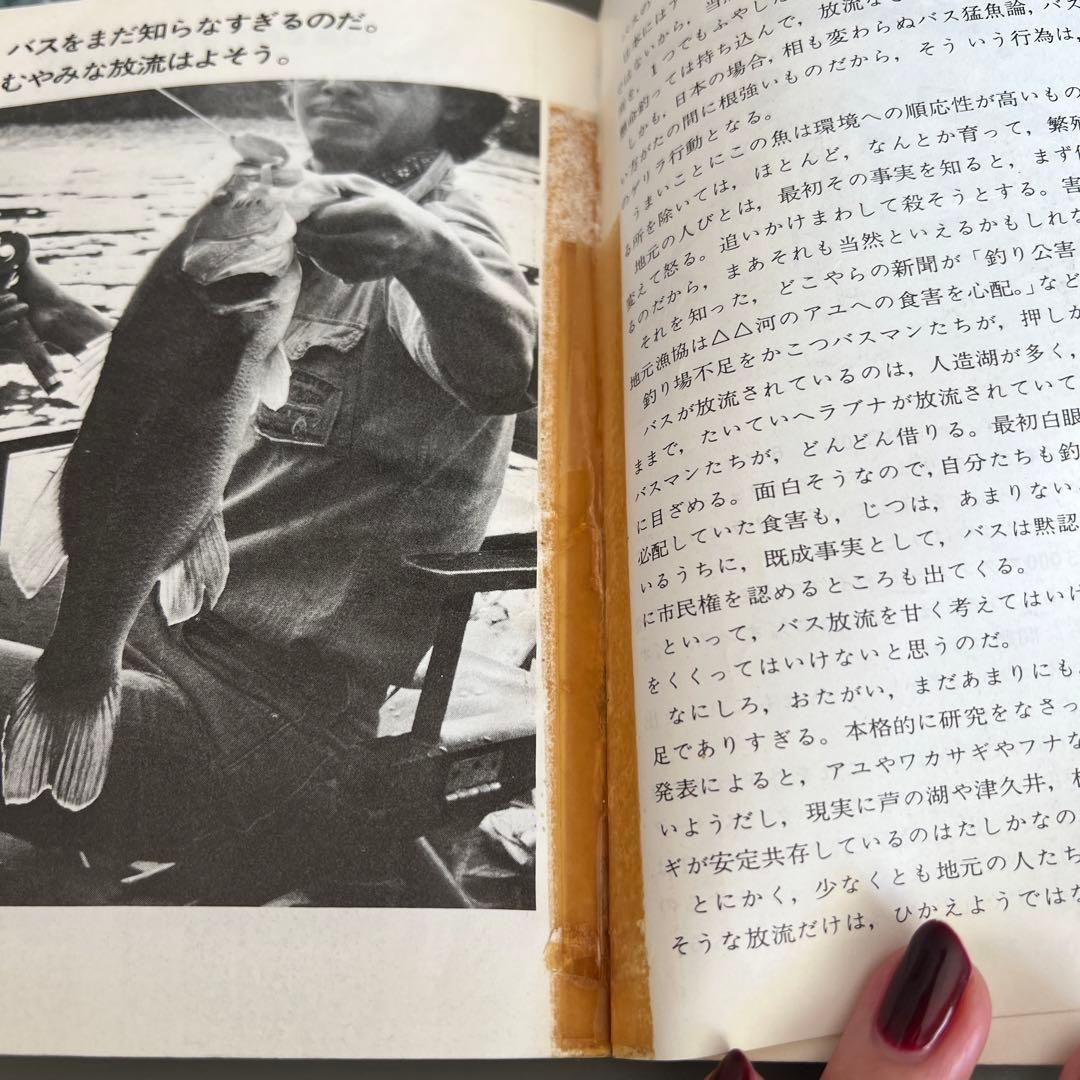 バスをまだ知らなすぎるのだ。
むやみな放流はよそう。
はないから，当然
を，1つでもふやした
釣っては持ち込んで，放流な
しかも，日本の場合，相も変わらぬバス猛魚論，バス
がたの間に根強いものだから，そういう行為は，
のゲリラ行動となる。
うまいことにこの魚は環境への順応性が高いもの
る所を除いては，ほとんど，なんとか育って，繁殖
地元の人びとは，最初その事実を知ると，まず
変えて怒る。追いかけまわして殺そうとする。害
るのだから，まあそれも当然といえるかもしれな
それを知った，どこやらの新聞が「釣り公害
地元漁協は△△河のアユへの食害を心配。」など
釣り場不足をかこつバスマンたちが，押しか
バスが放流されているのは，人造湖が多く，
ままで，たいていヘラブナが放流されていて
バスマンたちが，どんどん借りる。最初白眼
に目ざめる。面白そうなので，自分たちも釣
心配していた食害も，じつは，あまりない
いるうちに，既成事実として，バスは黙認
に市民権を認めるところも出てくる。
といって，バス放流を甘く考えてはいけ
をくくってはいけないと思うのだ。
なにしろ，おたがい，まだあまりにも
足でありすぎる。本格的に研究をなさっ
発表によると，アユやワカサギやフナな
いようだし，現実に芦の湖や津久井，相
ギが安定共存しているのはたしかなの
とにかく，少なくとも地元の人たち
そうな放流だけは，ひかえようではな